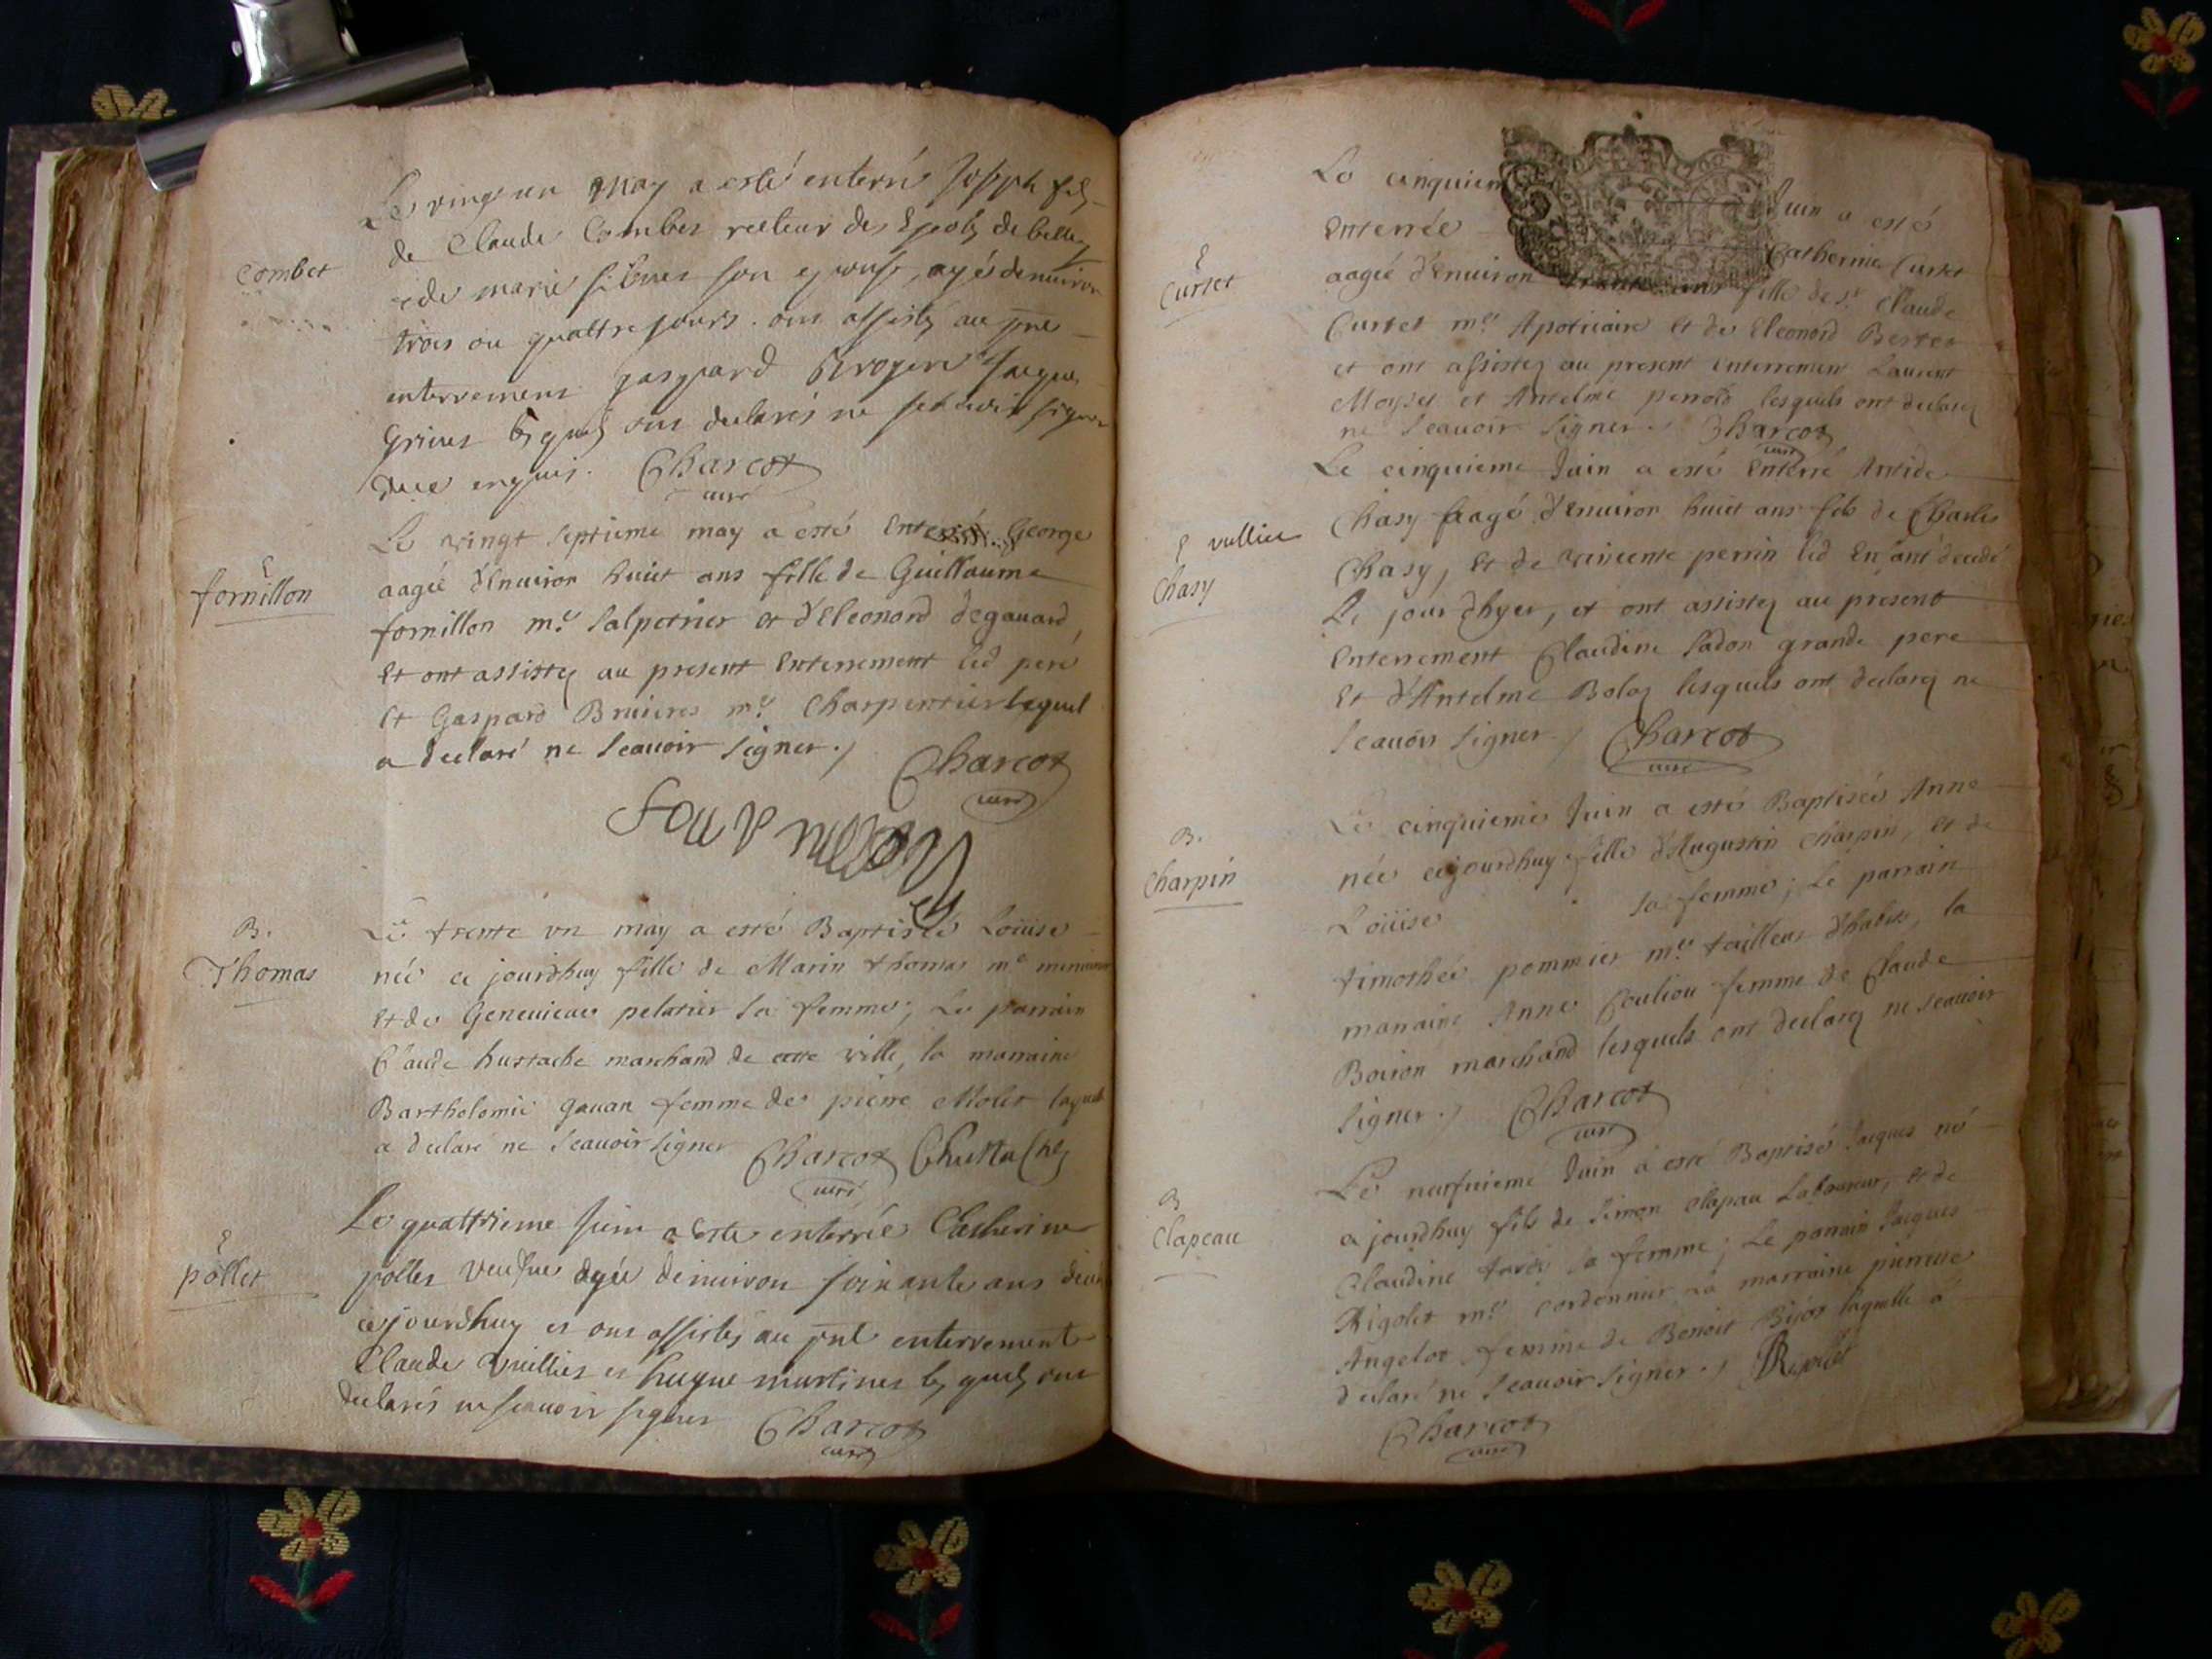 Combet
Le vingt un may a esté enterré Joseph fils
de Claude Combet recteur des Escoles de belley
et de marie son espouse, agé denuiron
trois ou quattre jours. ont assistés au pnt
enterrement gaspard Jacques
ont declarés ne scavoir signer
enquis. Charcot
curé
E
fornillon
Le vingt septieme may a esté Enterré George
aagée d'Enuiron huict ans fille de Guillaume
fornillon me. Salpetrier et d'Eleonord degauard,
Et ont assistez au present Enterrement led pere
Et Gaspard Bruieres me. Charpentier lequel
a declaré ne Scauoir Signer ./ Charcot
curé
fournillon
B.
Thomas
Le trente un may a esté Baptisée Loüise
née ce jourdhuy fille de Marin thomas me
et de Geneuieue pelatier sa femme; Le parrain
Claude hustache marchand de cette ville, la marraine
Bartholomie gauan femme de pierre Molet laquelle
a declaré ne Scauoir signer Charcot CHustaChe
curé
E
pollet
Le quattrieme Juin a Esté enterrée Catherine
pollet veufue agée denuiron soixante ans
cejourdhuy et ont assistés au pnt enterrement
Claude vuillier et hugue martinet les quels ont
declarés ne scauoir signer Charcot
curé
E
Curtet
Le cinquiem Juin a esté
Enterrée Catherine Curtet
aagée d'Enuiron trente ans fille de sr Claude
Curtet me. Apoticaire Et de Eleonord Bertet
et ont assistez au present Enterrement Laurent
Moyset et Antelme perrod lesquels ont declarez
ne Scauoir Signer. Charcot
curé
E vullier
Chasy
Le cinquieme Juin a esté Enterré Antide
Chasy aagé d'Enuiron huict ans fils de Charles
Chasy, Et de vincente perrin led Enfant decedé
Le jour d'hyer, et ont assistez au present
Enterrement Claudine Sadon grande pere
Et d'Antelme Bolog lesquels ont declarez ne
Scauoir Signer ./ Charcot
curé
B.
Charpin
Le cinquieme Juin a esté Baptisée Anne
née cejourdhuy fille d'Augustin Charpin, Et de
Loüise sa femme; Le parrain
timothée pommier me. tailleur d'habits, la
marraine Anne Couliou femme de Claude
Boiron marchand lesquels ont declarez ne scauoir
Signer ./ Charcot
curé
B
Clapeau
Le neufuieme Juin a esté Baptisé Jacques né
ce jourdhuy fils de Simon Clapeau Laboureur, et de
Claudine sa femme; Le parrain Jacques
Rigolet me. Cordonnier La marraine pierrette
Angelot femme de Benoit laquelle a
declaré ne Scauoir Signer ./ JRigollet
Charcot
curé